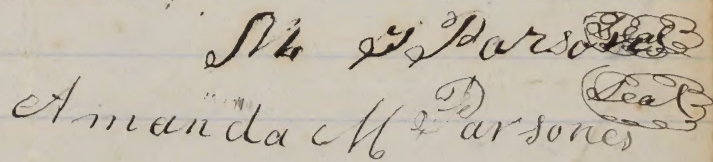 Parsones Seal
Amanda M Parsones Seal